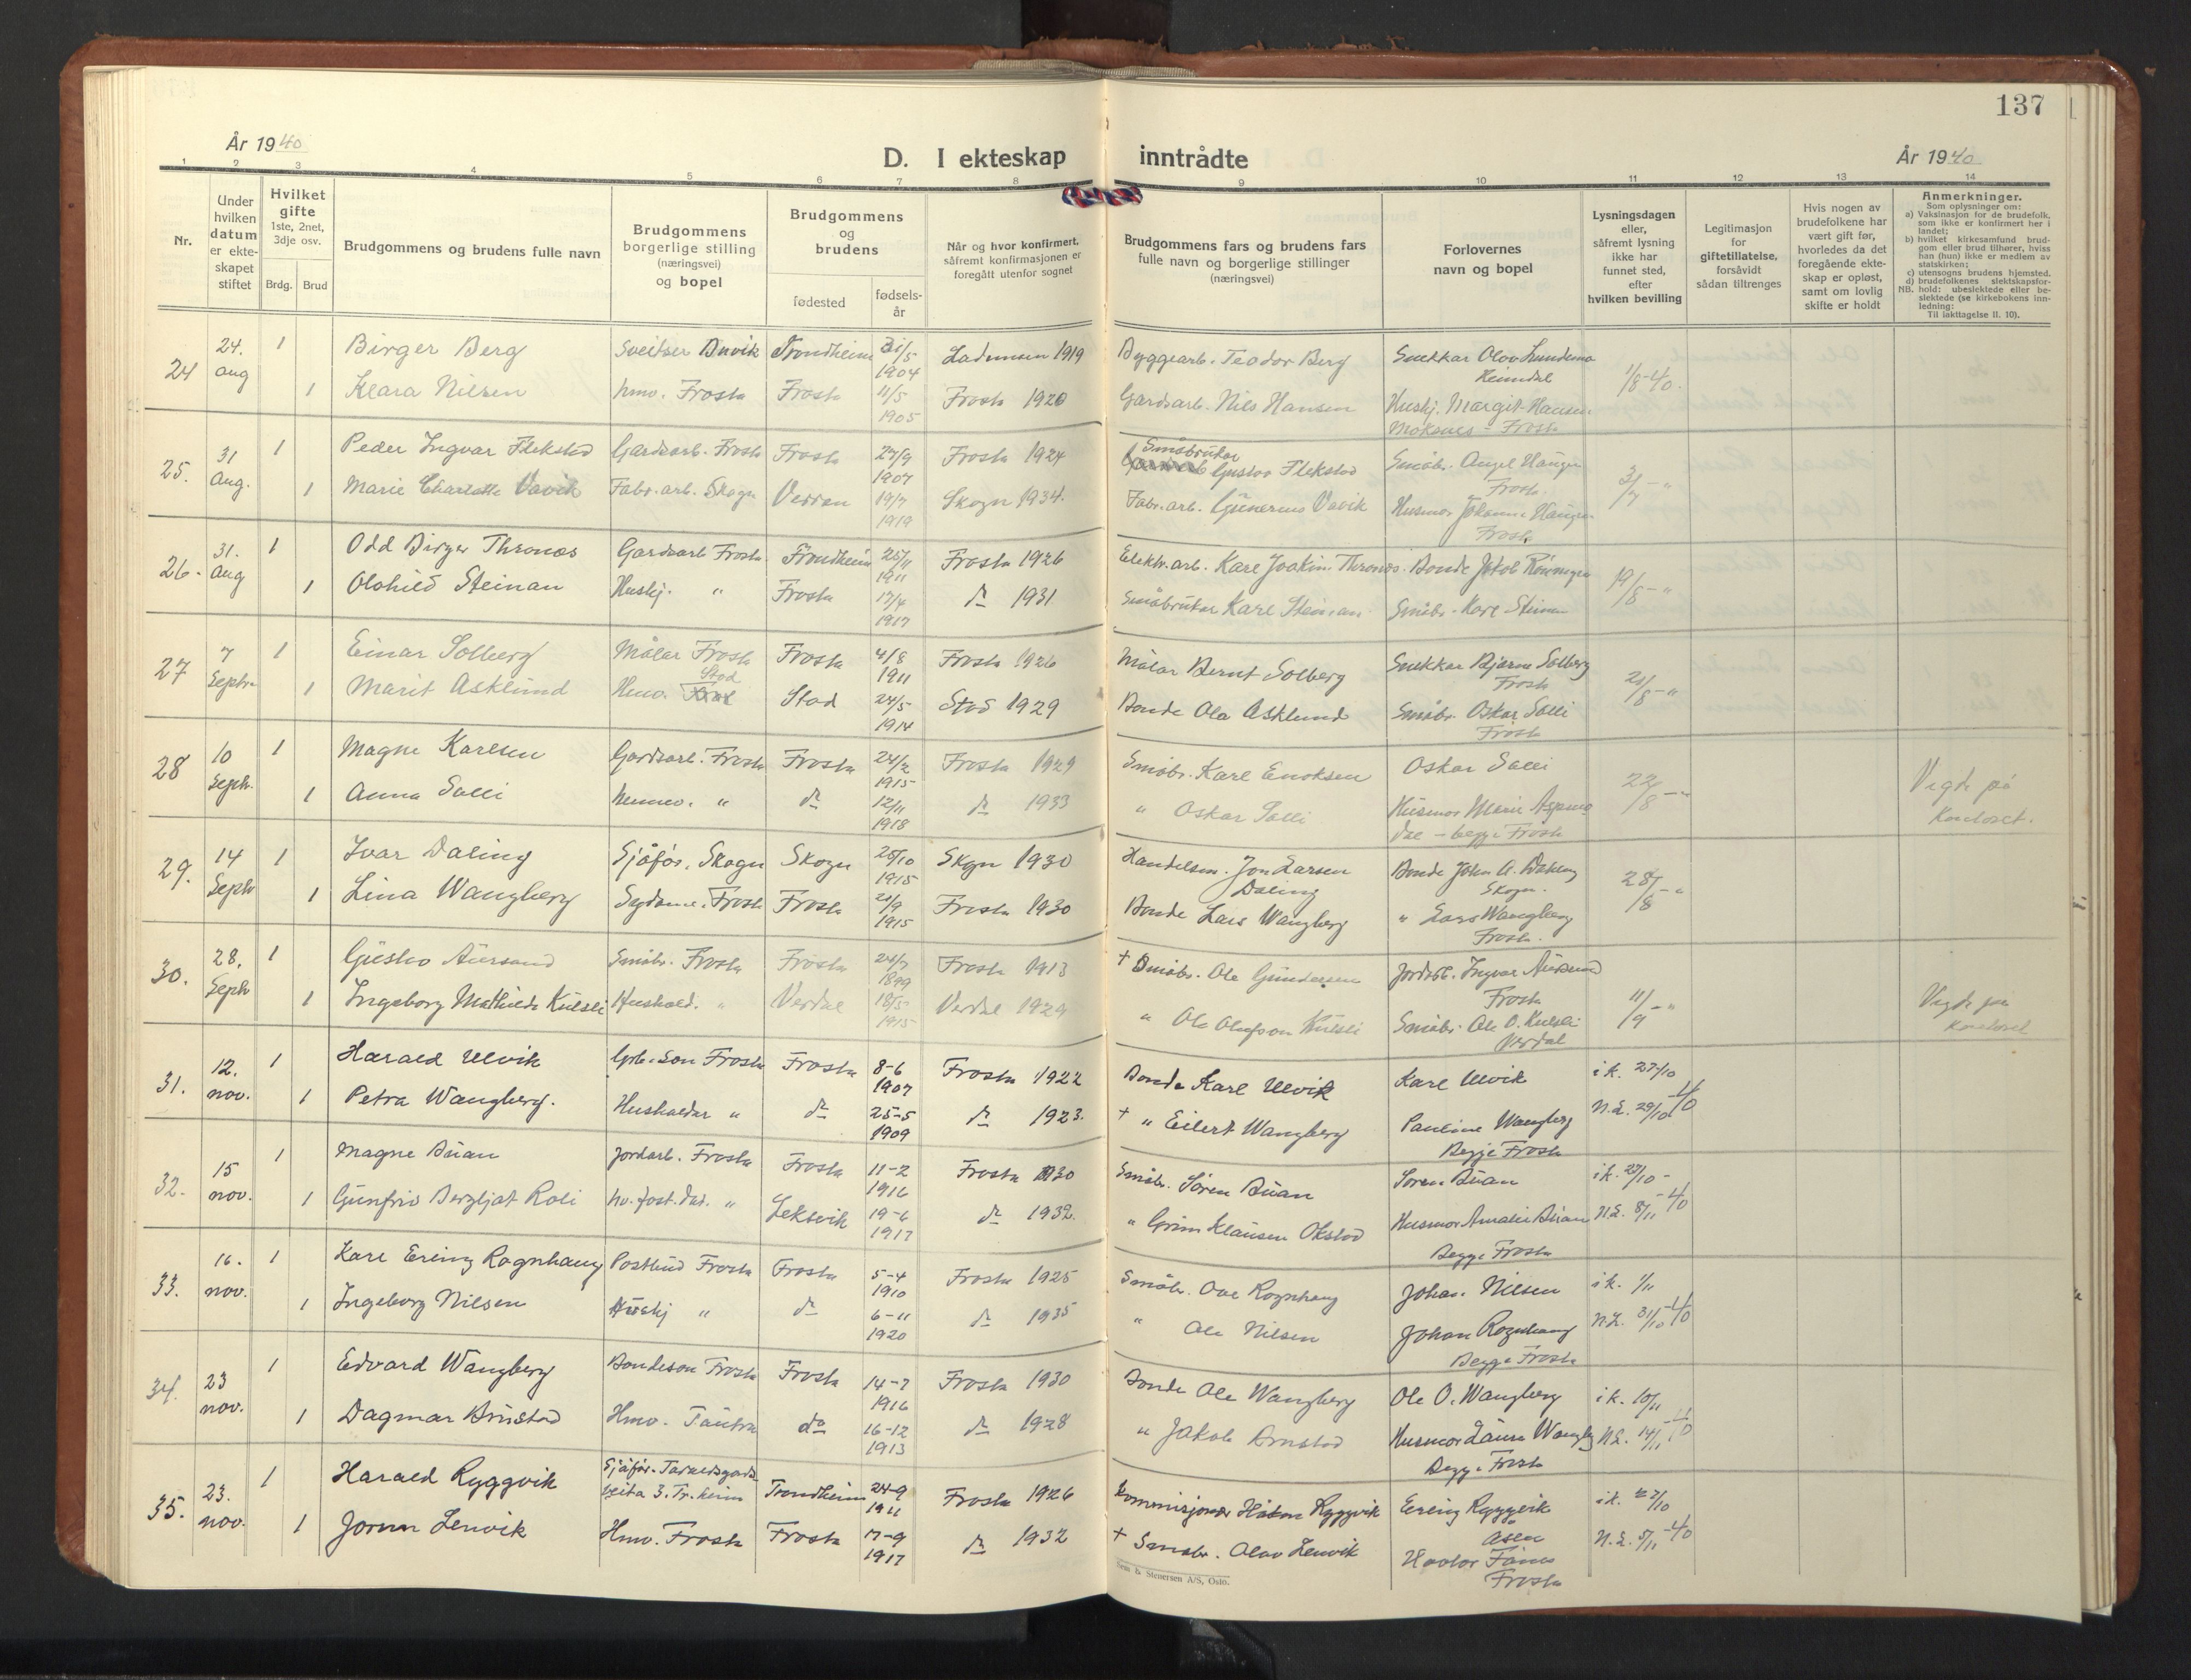 137
År 1940
D. I ekteskap inntrådte
År 1940
1 2 3 4 5 6 7 8 9 10 11 12 13 14
Nr.
Under hvilken datum er ekteskapet stiftet
Hvilket gifte 1ste, 2net, 3dje osv.
Brdg. Brud
Brudgommens og brudens fulle navn
Brudgommens borgerlige stilling (næringsvei) og bopel
Brudgommens og brudens
fødested
fødselsår
Når og hvor konfirmert, såfremt konfirmasjonen er foregått utenfor sognet
Brudgommens fars og brudens fars fulle navn og borgerlige stillinger (næringsvei)
Forlovernes navn og bopel
Lysningsdagen eller, såfremt lysning ikke har funnet sted, efter hvilken bevilling
Legitimasjon for giftetillatelse, forsåvidt sådan tiltrenges
Hvis nogen av brudefolkene har vært gift før, hvorledes da det foregående ekteskap er opløst, samt om lovlig skifte er holdt
Anmerkninger.
Som oplysninger om:
a) Vaksinasjon for de brudefolk, som ikke er konfirmert her i landet;
b) hvilket kirkesamfund brudgom eller brud tilhører, hviss han (hun) ikke er medlem av statskirken;
c) utensogns brudens hjemsted.
d) brudefolkenes slektskapsforhold: ubeslektede eller beslektede (se kirkebokens innledning:
NB.
Til iakttagelse II. 10).
24 24. aug 1 Birger Berg Sveitser Buvik Trondheim 31/5 1904 Lademoen 1919 Byggearb. Teodor Berg Snekkar Olav Lundemo Heimdal 1/8-40.
1 Klara Nilsen hmv. Frosta Frosta 11/5 1905 Frosta 1920 Gardsarb. Nils Hansen Huskj. Margit Hansen Moksnes - Frosta
25. 31 Aug. 1 Peder Ingvar Flekstad Gardsarb. Frosta Frosta 27/9 1907 Frosta 1924 Småbrukar Gustav Flekstad Småb. Haugen Frosta
1 Marie Charlotte Vavik Fabr.arb. Skogn Verran 19/7 1919 Skogn 1934. Fabr.arb. Gunerius Vavik Husmor Johanna Haugen Frosta
26. 31. Aug 1 Odd Birger Thronæs Gardsarb Frosta Trondheim 25/11 1911 Frosta 1926 Elektr.arb. Karl Joakim Thronæs. Bonde Jakob 19/8 - "
1 Olohild Steinan Huskj. " Frosta 17/4 1917 do 1931 Småbrukar Karl Steinan Småbr. Karl Steinan
27 7 Septr 1 Einar Solberg Målar Frosta Frosta 4/8 1911 Frosta 1926 Målar Bernt Solberg Snekkar Bjarne Solberg Frosta 21/8 - "
1 Marit Asklund Hmv. Stod Stod 24/5 1914 Stod 1929 Bonde Ola Asklund Småbr. Oskar Salli Frosta
28 10 Septr. 1 Magne Karlsen Gardsarb. Frosta Frosta 24/2 1915 Frosta 1929 Småbr. Karl Enoksen Oskar Salli 22/8 - " Vigde på Kontoret.
1 Anna Salli " do 12/11 1918 do 1933 " Oskar Salli Husmor Marie dal - begge Frosta
29. 14 Septr 1 Ivar Daling Sjåfør. Skogn Skogn 25/10 1915 Skogn 1930 Handelsm. Jon Larsen Daling Bonde John A. Daling Skogn. 28/8 - "
1 Lina Wangberg Sydame. Frosta Frosta 21/9 1915 Frosta 1930 Bonde Lars Wangberg " Lars Wangberg Frosta.
30. 28. Septr 1 Gustav Aursand Småbr. Frosta Frosta 24/7 1899 Frosta 1913 + Småbr. Ole Gundersen Jordarb. Ingvar Aursand Frosta 11/9 - " Vigde på kontoret
1 Ingeborg Mathilde Kulsli Hushold. " Verdal 18/5 1915 Verdal 1929 " Ole Olufson Kulsli Småbr. Ole O. Kulsli Verdal
31. 12. nov. 1 Harald Ulvik Grb.son Frosta Frosta 8-6 1907 Frosta 1922 Bonde Karl Ulvik Karl Ulvik i k. 27/10
1 Petra Wangberg. Husholder " do 25-5 1909 do 1923. + " Eilert Wangberg Pauline Wangberg Begge Frosta N.E. 29/10-40
32. 15 nov. 1 Magne Buan Jordarb. Frosta Frosta 11-2 1916 Frosta 1930 Småbr. Søren Buan Søren Buan i k. 27/10 -
1 Gunfrid Bergljot Roli " Leksvik 19-6 1917 do 1932. " Grim Klausen Okstad Husmor Amalie Buan Begge Frosta N.E. 8/11-40
33. 16. nov. 1 Karl Erling Rognhaug Postbud Frosta Frosta 5-4 1910 Frosta 1925 Småbr. Ove Rognhaug Johan Nilsen i k. 1/11
1 Ingeborg Nilsen Huskj " do 6-11 1920 do 1935 " Ole Nilsen Johan Rognhaug Begge Frosta N.E. 31/10-40
34. 23 nov. 1 Edvard Wangberg Bondeson Frosta Frosta 14-7 1916 Frosta 1930 Bonde Ole Wangberg Ole O. Wangberg i k. 10/11
1 Dagmar Arnstad Hmv. Tautra do 16-12 1913 do 1928 " Jakob Arnstad Husmor Laura Wangberg Begge Frosta N.E. 14/11-40
35. 23. nov. 1 Harald Ryggvik Sjåfør. veita 3. Tr.heim Trondheim 24-9 1911 Frosta 1926 Kommisjonær Håkon Ryggvik Erling Ryggvik Åsen i k. 27/10
1 Jorun Lenvik Hmv. Frosta Frosta 17-9 1917 do 1932 + Småbr. Olav Lenvik Frosta N.E. 5/11-40
& Stenersen A/S, Oslo.